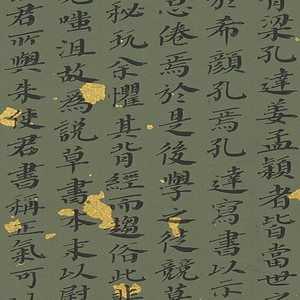 有梁孔達姜孟穎者皆當世之
於希顏孔焉孔達寫書以示
怠倦焉於是後學之徒競
秘玩余懼其背經而趨俗此非
嗤沮故為說草書本末以慰
君所與朱使君書稱正氣可